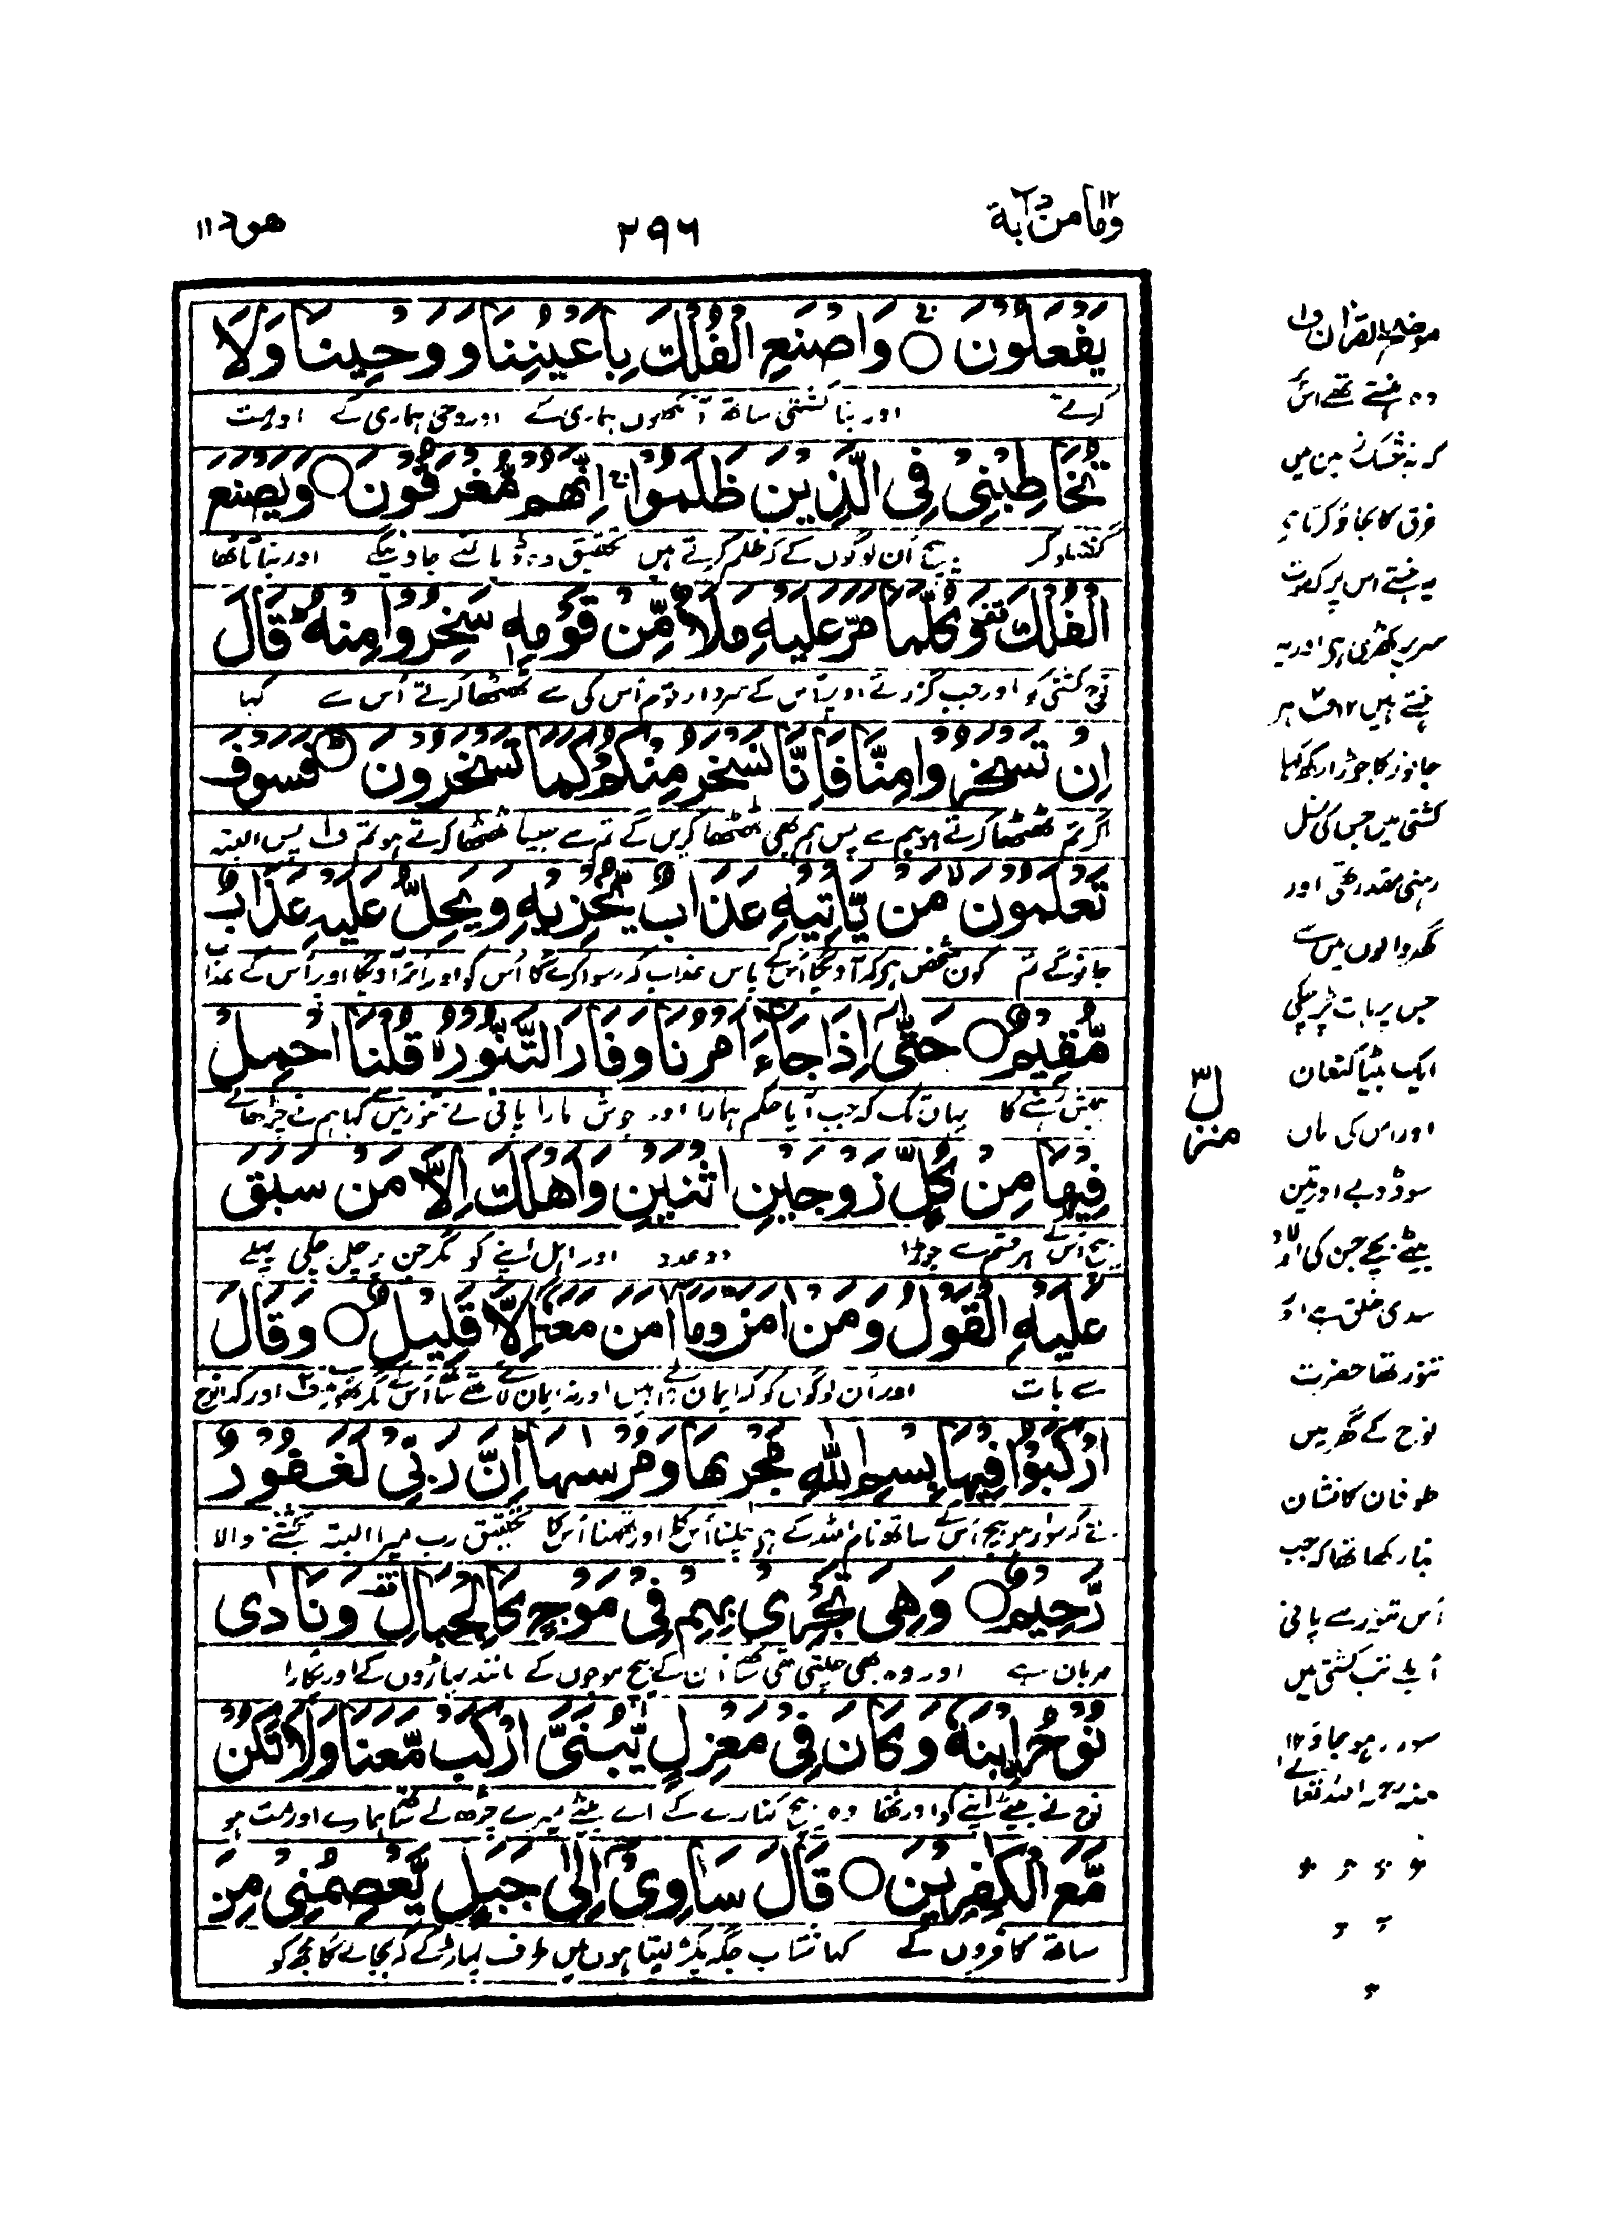 وما من دآبة ١٢
٢٩٦
هود ١١
يَفْعَلُوْنَ ○ وَاصْنَعِ الْفُلْكَ بِاَعْيُنِنَا وَوَحْيِنَا وَلَا
کرتے اور بنا کشتی ساتھ آنکھوں ہماری کے اور وحی ہماری کے اور مت
تُخَاطِبْنِيْ فِي الَّذِيْنَ ظَلَمُوْا ۚ اِنَّهُمْ مُّغْرَقُوْنَ ○ وَيَصْنَعُ
گفتگو کر بیچ اُن لوگوں کے کہ ظلم کرتے ہیں تحقیق وہ ڈوبائے جاوینگے اور بناتا تھا
الْفُلْكَ ۫ وَكُلَّمَا مَرَّ عَلَيْهِ مَلَاٌ مِّنْ قَوْمِهٖ سَخِرُوْا مِنْهُ ؕ قَالَ
کشتی کو اور جب گزرتے اوپر اُس کے سردار قوم اُس کی سے ٹھٹھا کرتے اُس سے کہا
اِنْ تَسْخَرُوْا مِنَّا فَاِنَّا نَسْخَرُ مِنْكُمْ كَمَا تَسْخَرُوْنَ ○ فَسَوْفَ
اگر تم ٹھٹھا کرتے ہو ہم سے پس ہم بھی ٹھٹھا کریں گے تم سے جیسا ٹھٹھا کرتے ہو تم ف۱ پس البتہ
تَعْلَمُوْنَ مَنْ يَّاْتِيْهِ عَذَابٌ يُّخْزِيْهِ وَيَحِلُّ عَلَيْهِ عَذَابٌ
جانو گے تم کون شخص ہے کہ آویگا اُس کے پاس عذاب کہ رسوا کرے گا اُس کو اور اُتر آویگا اوپر اُس کے عذاب
مُّقِيْمٌ ○ حَتّٰۤى اِذَا جَآءَ اَمْرُنَا وَفَارَ التَّنُّوْرُ ۙ قُلْنَا احْمِلْ
ہمیش رہنے کا یہاں تک کہ جب آیا حکم ہمارا اور جوش مارا پانی نے تنور میں سے کہا ہم نے چڑھالے
فِيْهَا مِنْ كُلٍّ زَوْجَيْنِ اثْنَيْنِ وَاَهْلَكَ اِلَّا مَنْ سَبَقَ
بیچ اُس کے ہر قسم سے جوڑا دو عدد اور اہل اپنے کو مگر جن پر چل چکی پہلے
عَلَيْهِ الْقَوْلُ وَمَنْ اٰمَنَ ؕ وَمَاۤ اٰمَنَ مَعَهٗۤ اِلَّا قَلِيْلٌ ○ وَقَالَ
سے بات اور اُن لوگوں کو کہ ایمان لائے ہیں اور نہ ایمان لائے تھے ساتھ اُس کے مگر تھوڑے ف۲ اور کہا نوح
ارْكَبُوْا فِيْهَا بِسْمِ اللّٰهِ مَجْرٖىهَا وَمُرْسٰىهَا ؕ اِنَّ رَبِّيْ لَغَفُوْرٌ
نے کہ سوار ہو بیچ اُس کے ساتھ نام اللہ کے ہے چلنا اُس کا اور ٹھہرنا اُس کا تحقیق رب میرا البتہ بخشنے والا
رَّحِيْمٌ ○ وَهِيَ تَجْرِيْ بِهِمْ فِيْ مَوْجٍ كَالْجِبَالِ ۫ وَنَادٰى
مہربان ہے اور وہ بھی چلتی تھی ساتھ اُن کے بیچ موجوں کے مانند پہاڑوں کے اور پکارا
نُوْحُ ۨ ابْنَهٗ وَكَانَ فِيْ مَعْزِلٍ يّٰبُنَيَّ ارْكَبْ مَّعَنَا وَلَا تَكُنْ
نوح نے بیٹے اپنے کو اور تھا وہ بیچ کنارے کے اے بیٹے میرے چڑھ لے ساتھ ہمارے اور مت ہو
مَّعَ الْكٰفِرِيْنَ ○ قَالَ سَاٰوِيْۤ اِلٰى جَبَلٍ يَّعْصِمُنِيْ مِنَ
ساتھ کافروں کے کہا شتاب جگہ پکڑ لیتا ہوں میں طرف پہاڑ کے کہ بچالے گا مجھ کو
منزل ٣
موضح القرآن ف۱
وہ ہنستے تھے اس
کہ یہ خشک زمین میں
غرق کا بچاؤ کرتا ہے
یہ ہنستے اس پر کہ موت
سر پر کھڑی ہے اور یہ
ہنستے ہیں ۱۲ ف۲ ہر
جانور کا جوڑا رکھ لیا
کشتی میں جس کی نسل
رہنی مقدر تھی اور
گھر والوں میں سے
جس پر بات پڑ چکی
ایک بیٹا کنعان
اور اس کی ماں
سو ڈوبے اور تین
بیٹے بچے جن کی اولاد
ساری خلق ہے اور
تنور تھا حضرت
نوح کے گھر میں
طوفان کا نشان
بتا رکھا تھا کہ جب
اُس تنور سے پانی
اُبلے تب کشتی میں
سوار ہو جاؤ ۱۲
منہ رحمہ اللہ تعالٰے